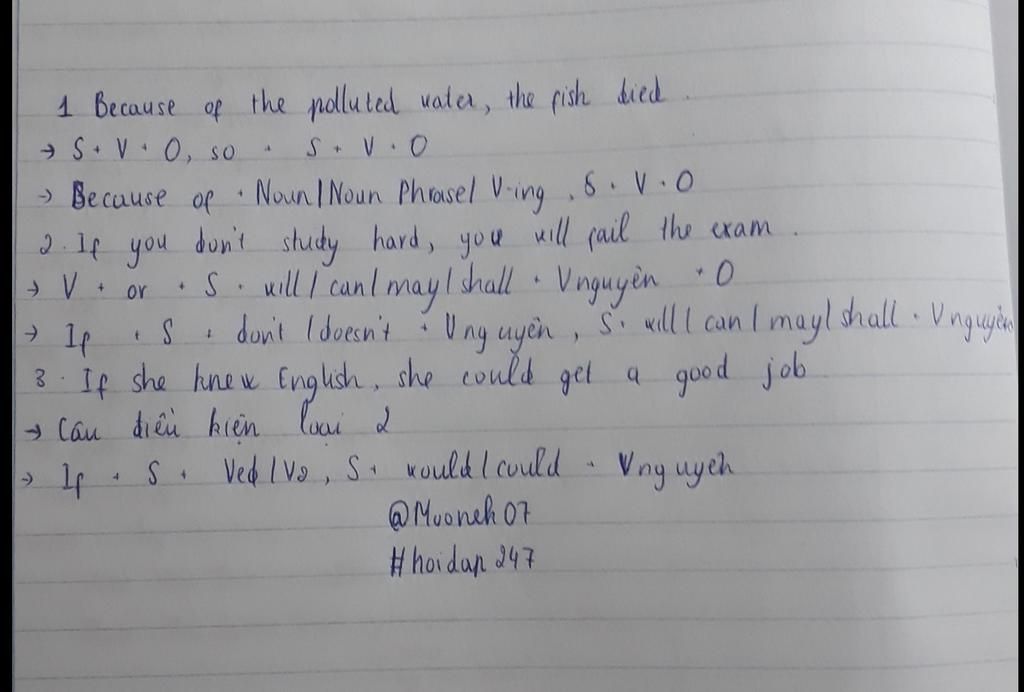 1 Because of the polluted water, the fish died.
→ S + V + O, so + S + V + O
→ Because of + Noun/Noun Phrase/ V-ing, S + V + O
2. If you don't study hard, you will fail the exam.
→ V + or + S + will / can / may / shall + Vnguyên + O
→ If + S + don't / doesn't + Vnguyên, S + will / can / may / shall + Vnguyên
3. If she knew English, she could get a good job
→ Câu điều kiện loại 2
→ If + S + Ved/V2, S + would/could + Vnguyên
@Muoneh07
#hoidap247